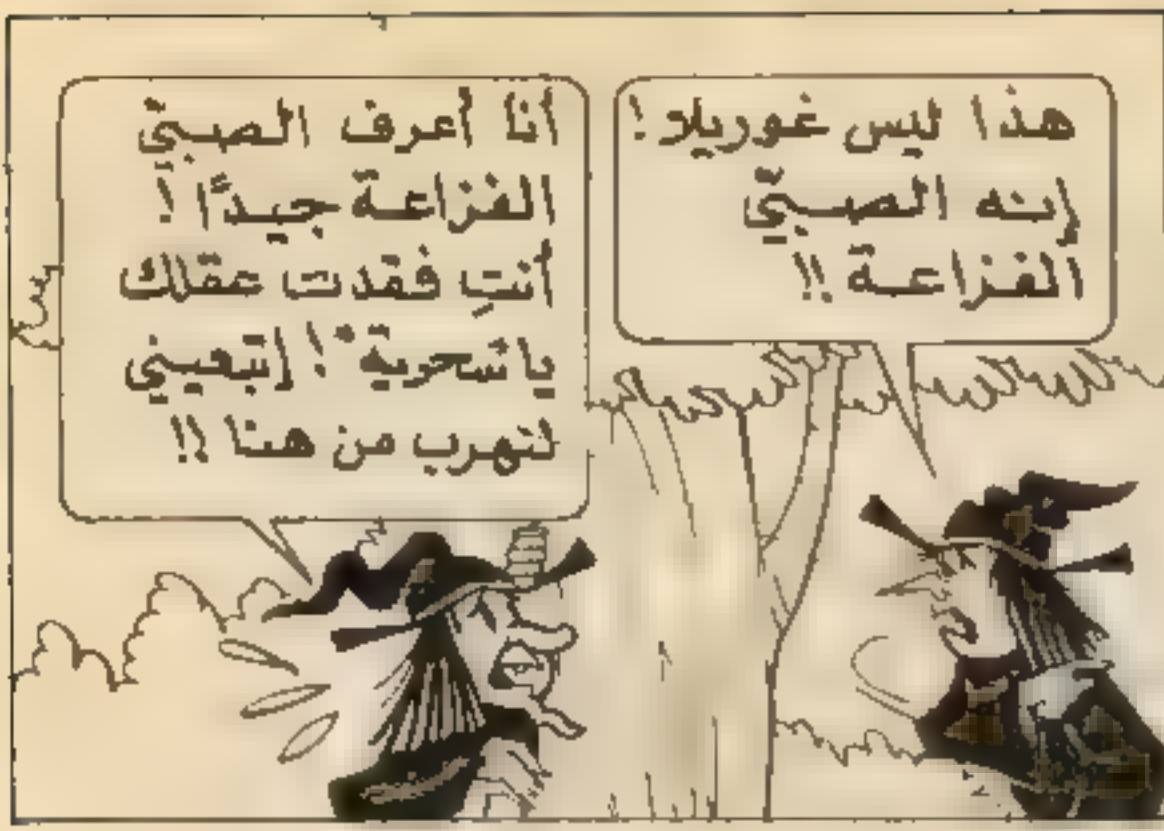 هذا ليس غوريلا!
إنه الصبيّ
الفزاعة!!
أنا أعرف الصبيّ
الفزاعة جيدًا!
أنتِ فقدت عقلك
يا شحرية! إتبعيني
لنهرب من هنا!!